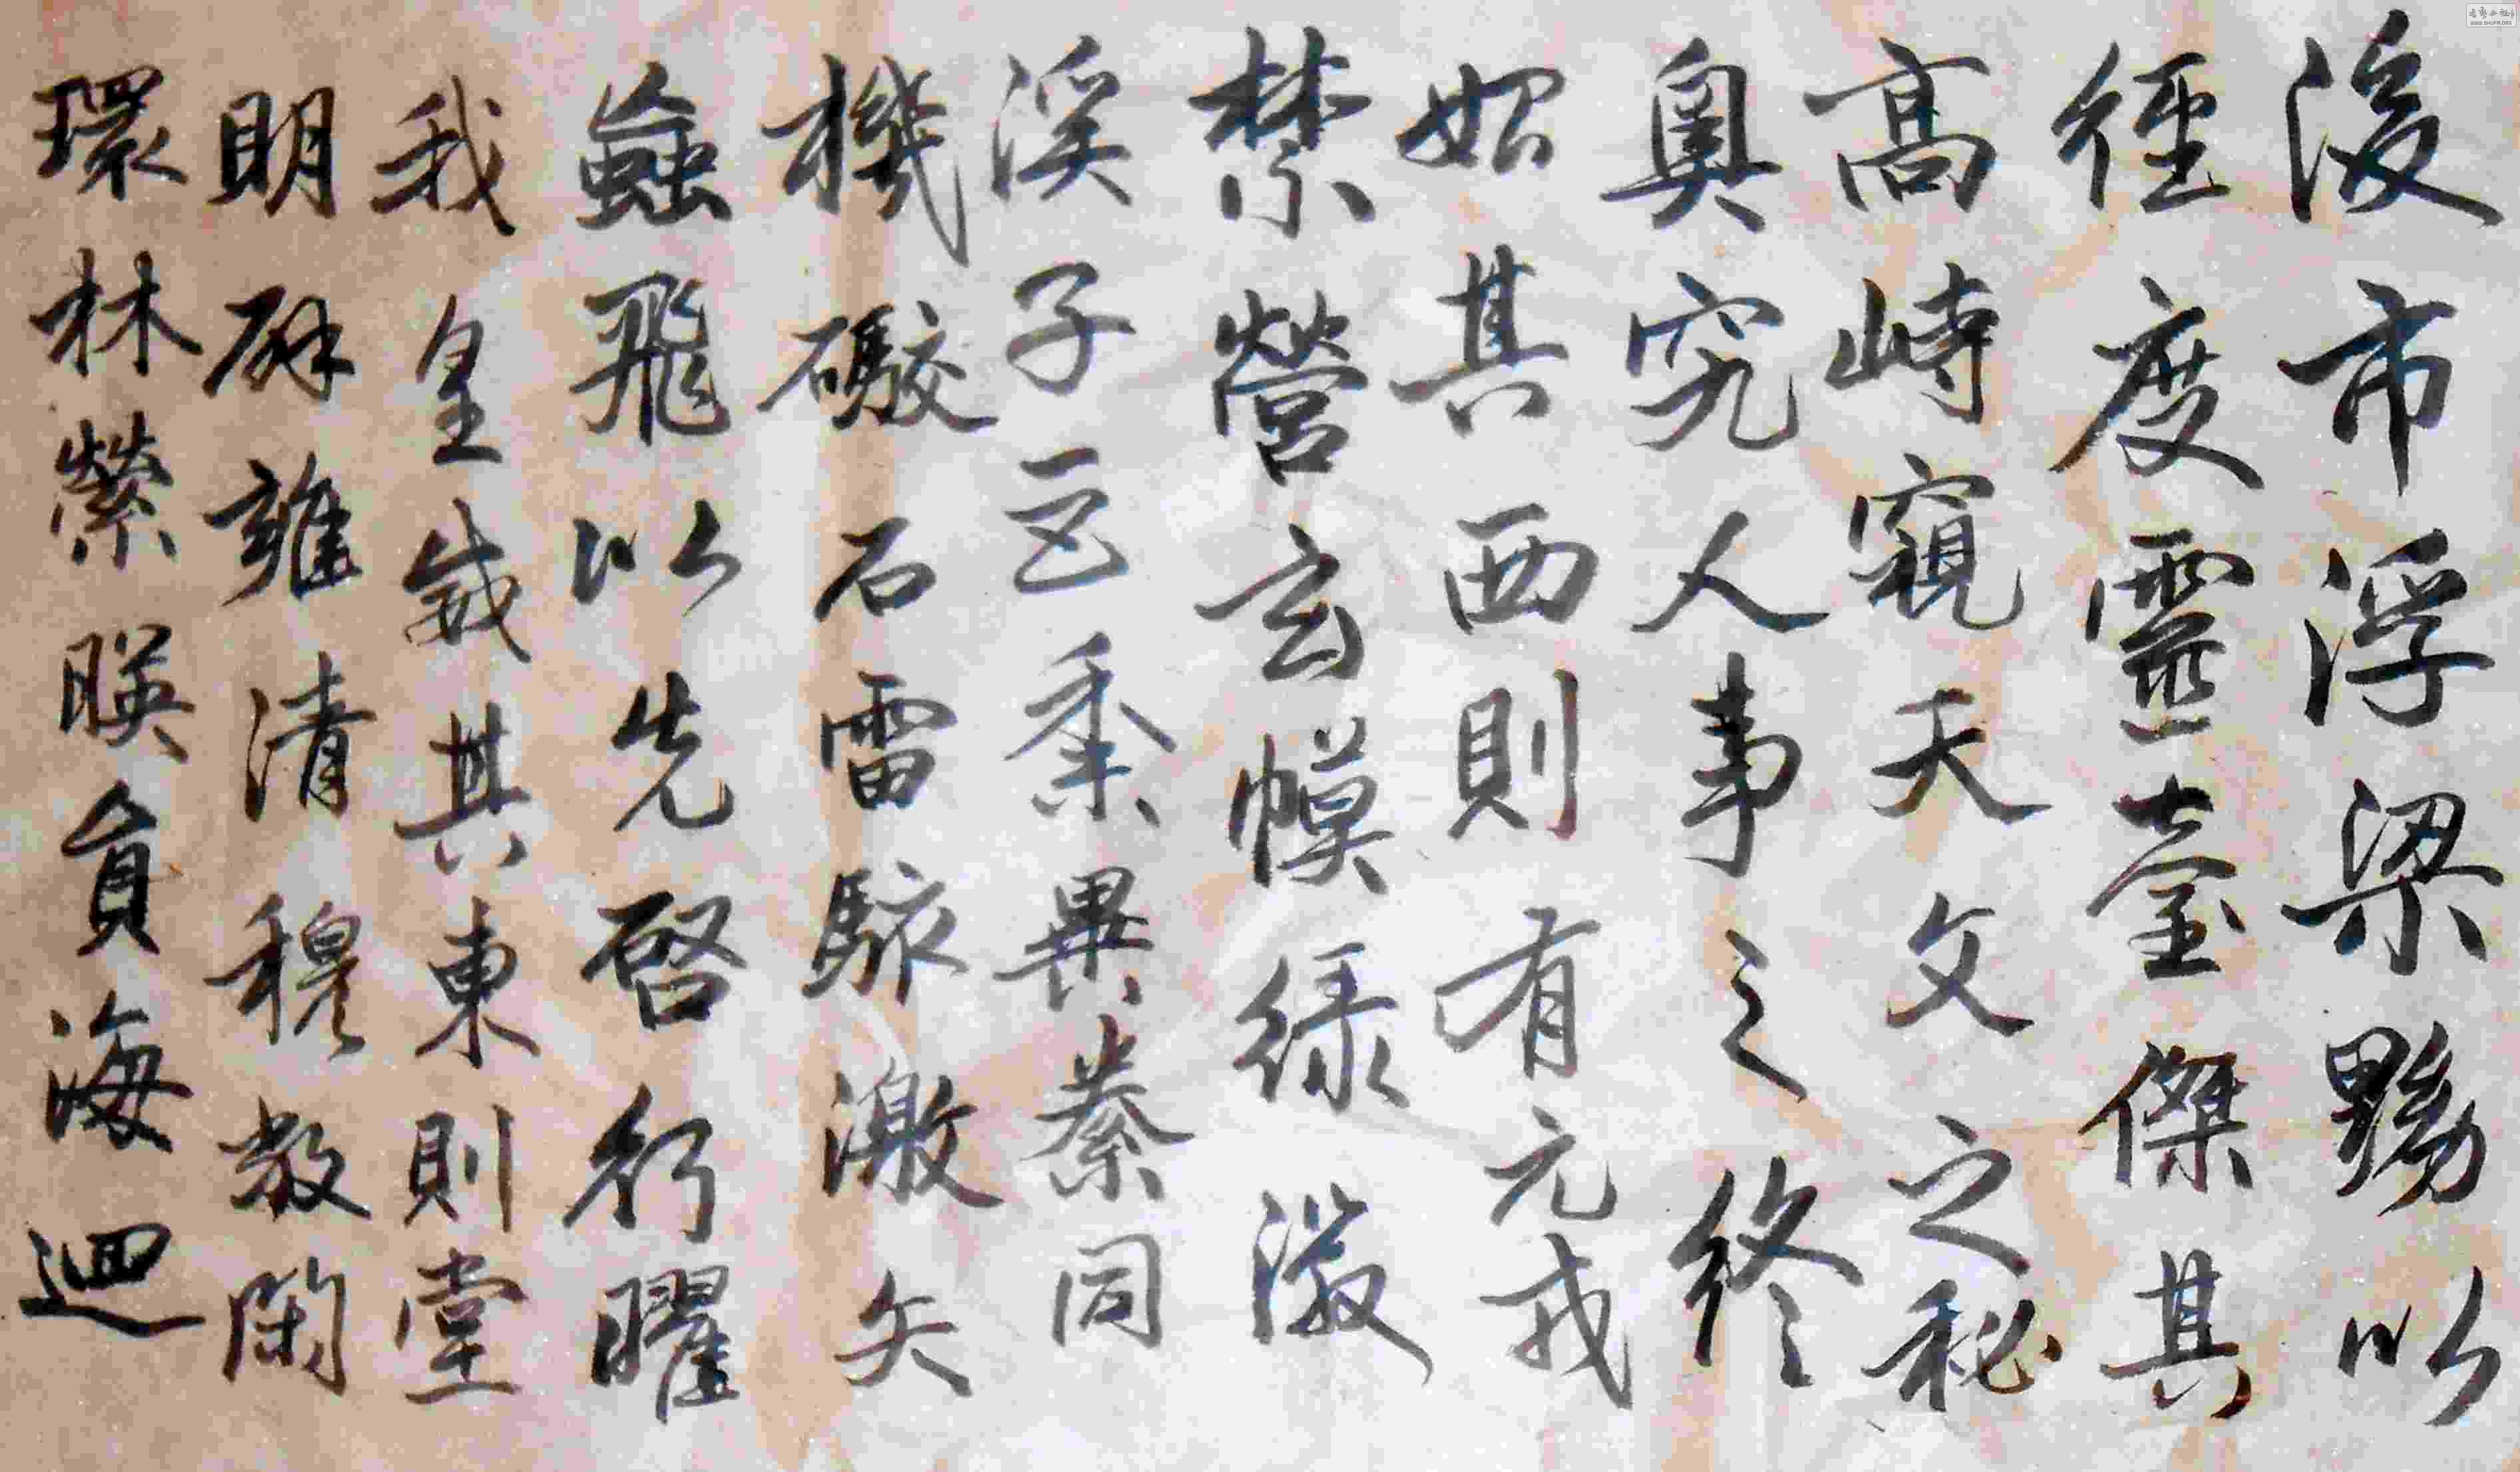 後市浮梁黝以
徑度靈臺傑其
高峙窺天文之秘
奧究人事之終
始其西則有元戎
禁營玄幙綠徽
溪子巨黍異絭同
機礮石雷駭激矢
蝱飛以先啓行曜
我皇威其東則堂
明辟雍清穆敞閑
環林縈映員海迴